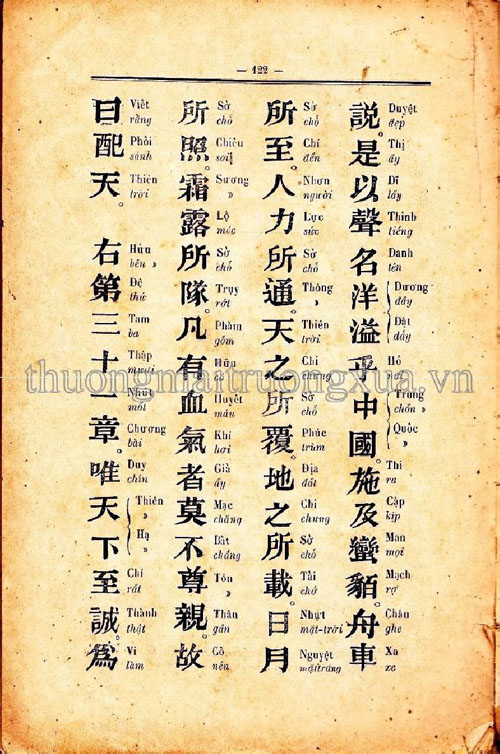 — 422 —
說。是以聲名洋溢乎中國。施及蠻貊。舟車
Duyệt đẹp Thị ấy Dĩ lấy Thinh tiếng Danh tên Dương đầy Dật đầy Hồ Trung chốn » Quốc » Thi ra Cập kịp Man mọi Mạch rợ Châu ghe Xa xe
所至。人力所通。天之所覆。地之所載。日月
Sở chỗ Chí đến Nhơn người Lực sức Sở chỗ Thông » Thiên trời Chi chưng Sở chỗ Phúc trùm Địa đất Chi chưng Sở chỗ Tải chở Nhựt mặt-trời Nguyệt mặt trăng
所照。霜露所隊。凡有血氣者莫不尊親。故
Sở chỗ Chiếu soi Sương » Lộ móc Sở chỗ Trụy rớt Phàm gồm Hữu có Huyết máu Khí hơi Giả ấy Mạc chẳng Bất chẳng Tôn » Thân gần Cố nên
曰配天。右第三十一章。唯天下至誠。爲
Viết rằng Phối sánh Thiên trời Hữu bên » Đệ thứ Tam ba Thập mươi Nhứt một Chương bài Duy chỉn Thiên » Hạ » Chí rất Thành thật Vi làm
thuongmaitruongxua.vn